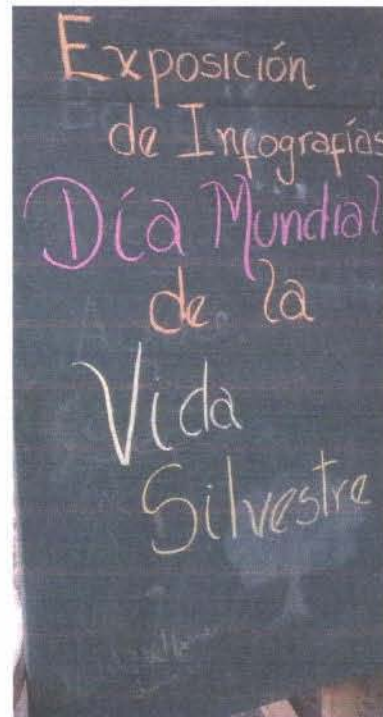 Exposición
de Infografías
Día Mundial
de la
Vida
Silvestre